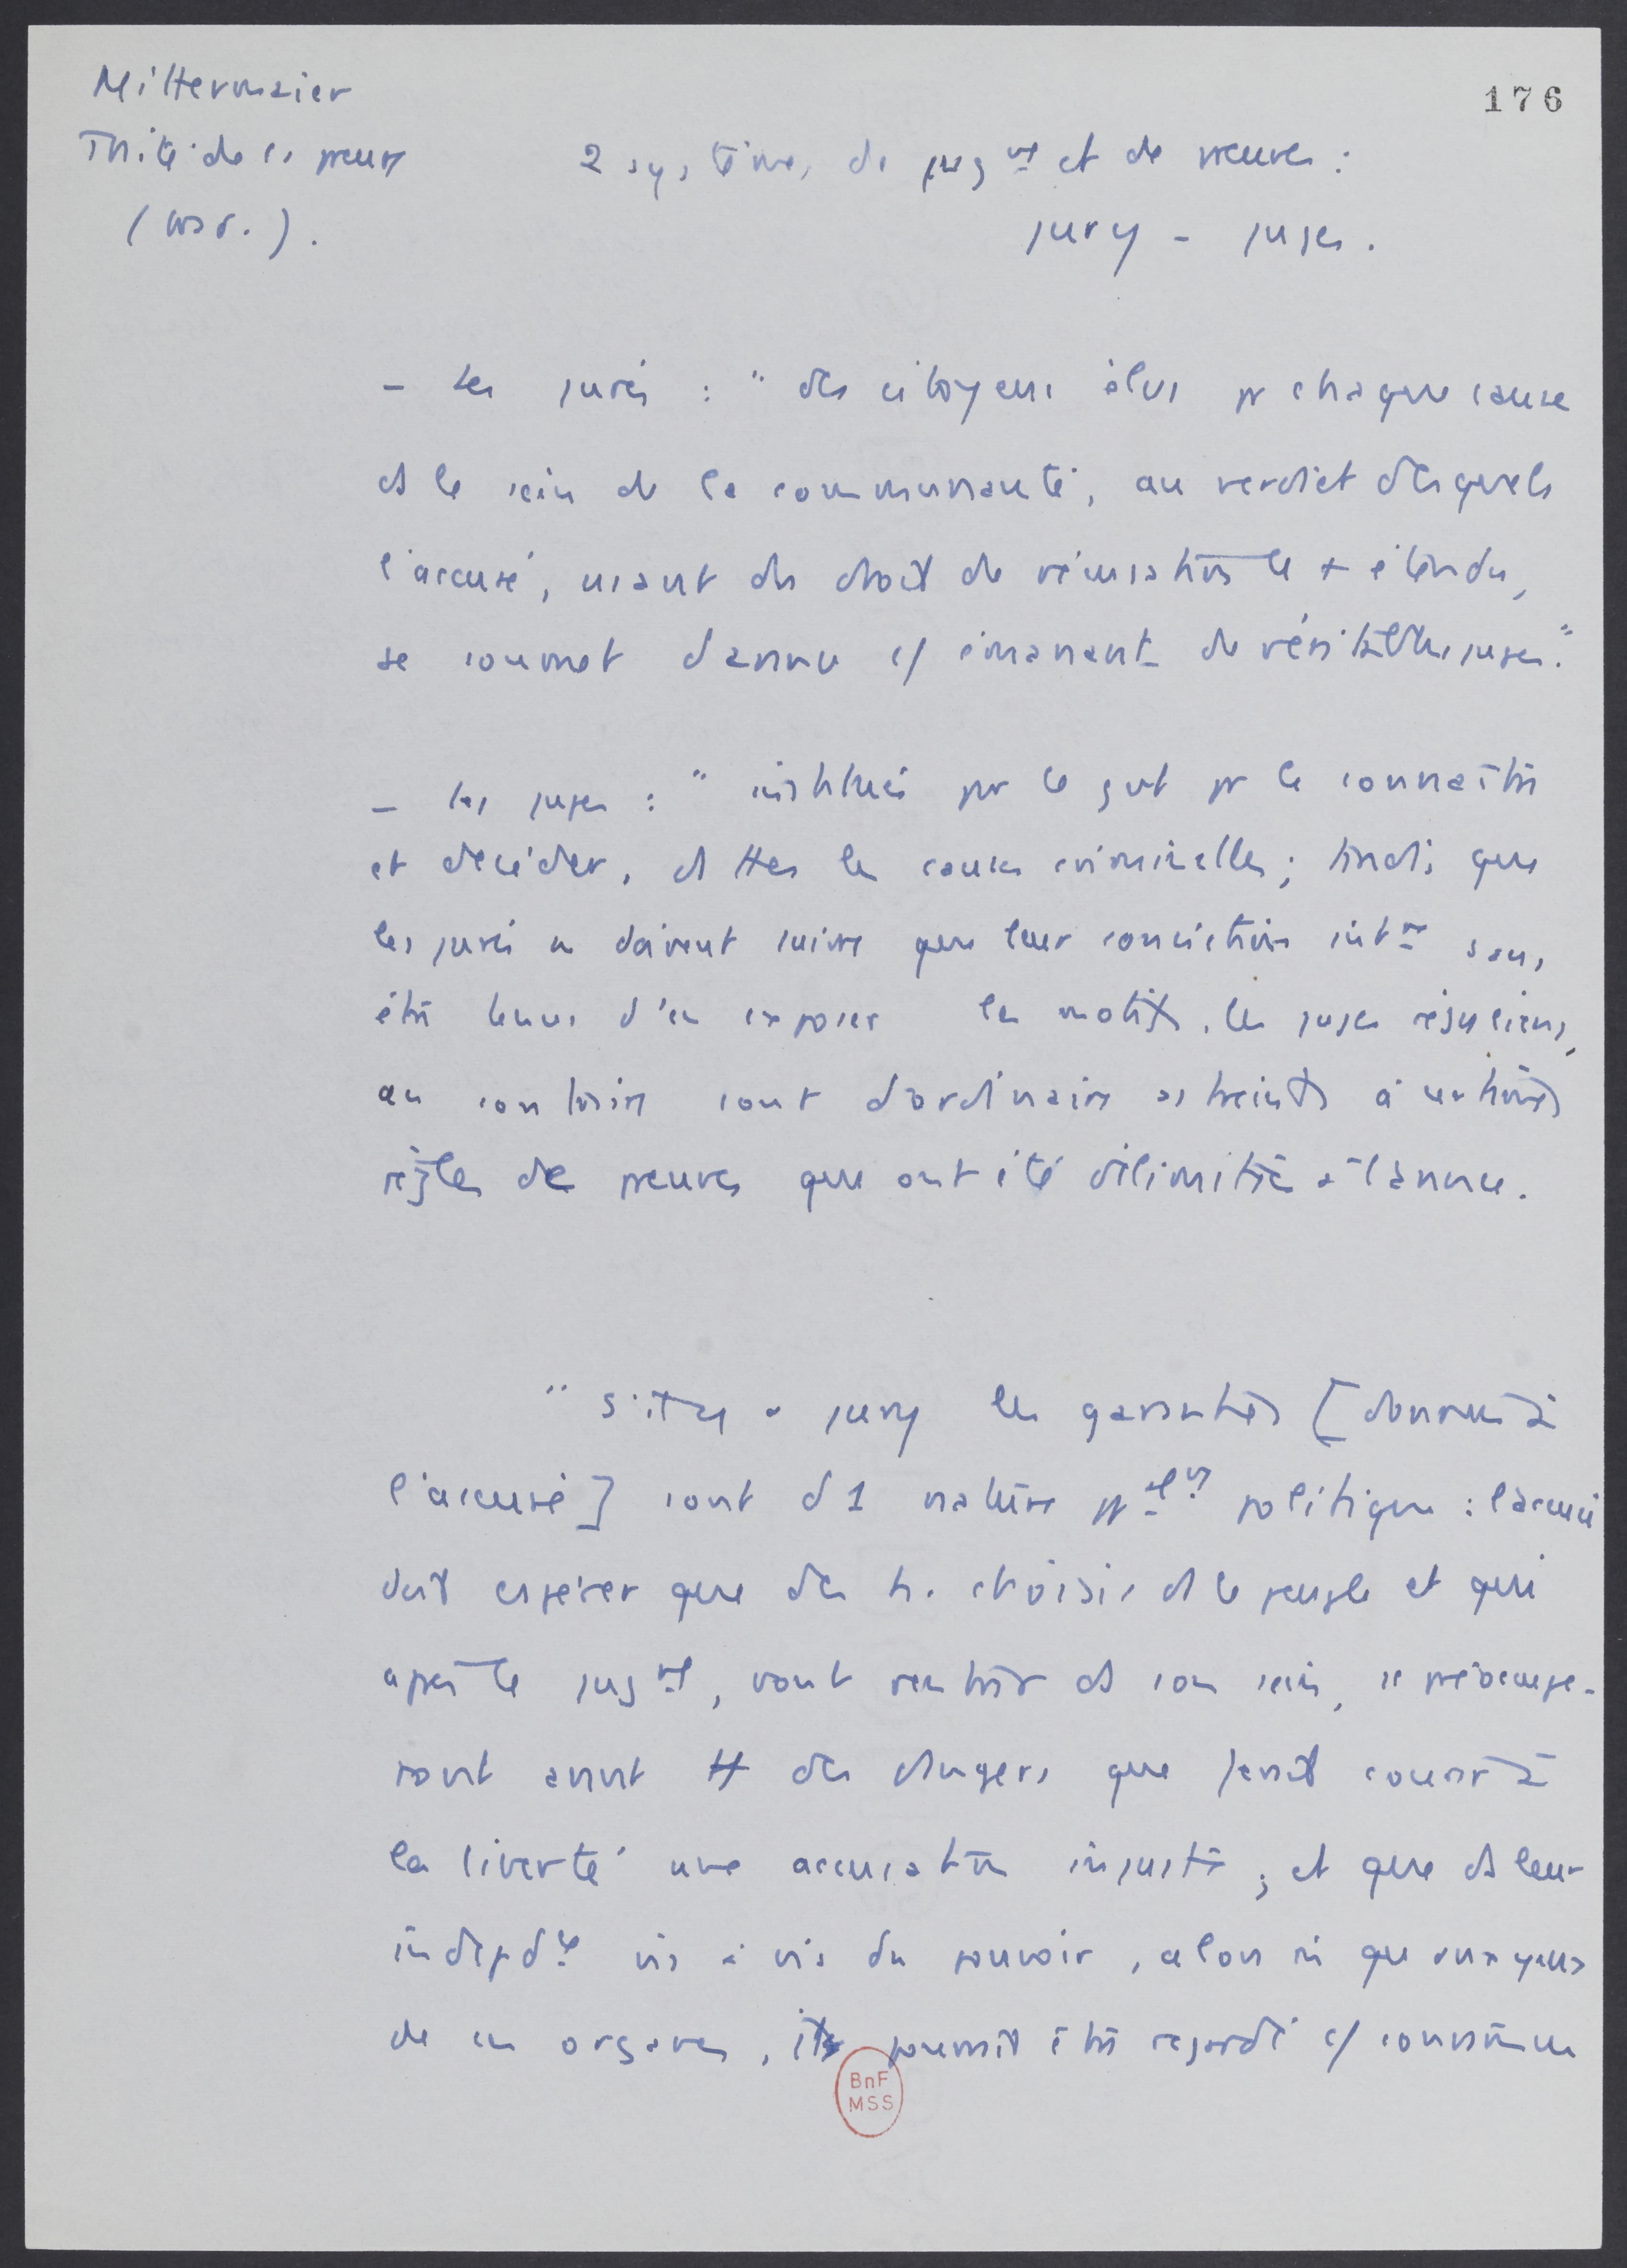 176
Mittermaier
Traité de la preuve
(trad.).
2 systèmes de jug^mt et de preuves :
jury - juges.
- Les jurés : " des citoyens élus pr chaque cause
ds le sein de la communauté, au verdict desquels
l'accusé, usant du droit de récusation le + étendu,
se soumet d'avance c/ émanant de véritables juges."
- les juges : " institués par le gvt pr le connaître
et décider, ds ttes les causes criminelles ; tandis que
les jurés ne doivent suivre que leur conviction int^me sans
être tenus d'en exposer les motifs, les juges réguliers,
au contraire sont d'ordinaire astreints à certaines
règles de preuves que ont été délimitées à l'avance.
" S'il y a jury les garanties [données à
l'accusé] sont d 1 nature pp^alemt politique : l'accusé
doit espérer que des h. choisis ds le peuple et qui
après le jug^mt, vont rentrer ds son sein, se préoccupe-
ront avant tt des dangers que ferait courir à
la liberté une accusation injuste ; et que ds leur
indépd^ce vis à vis du pouvoir, alors mê que aux yeux
de ces organes, il pourrait être regardé c/ convaincu
BnF
MSS